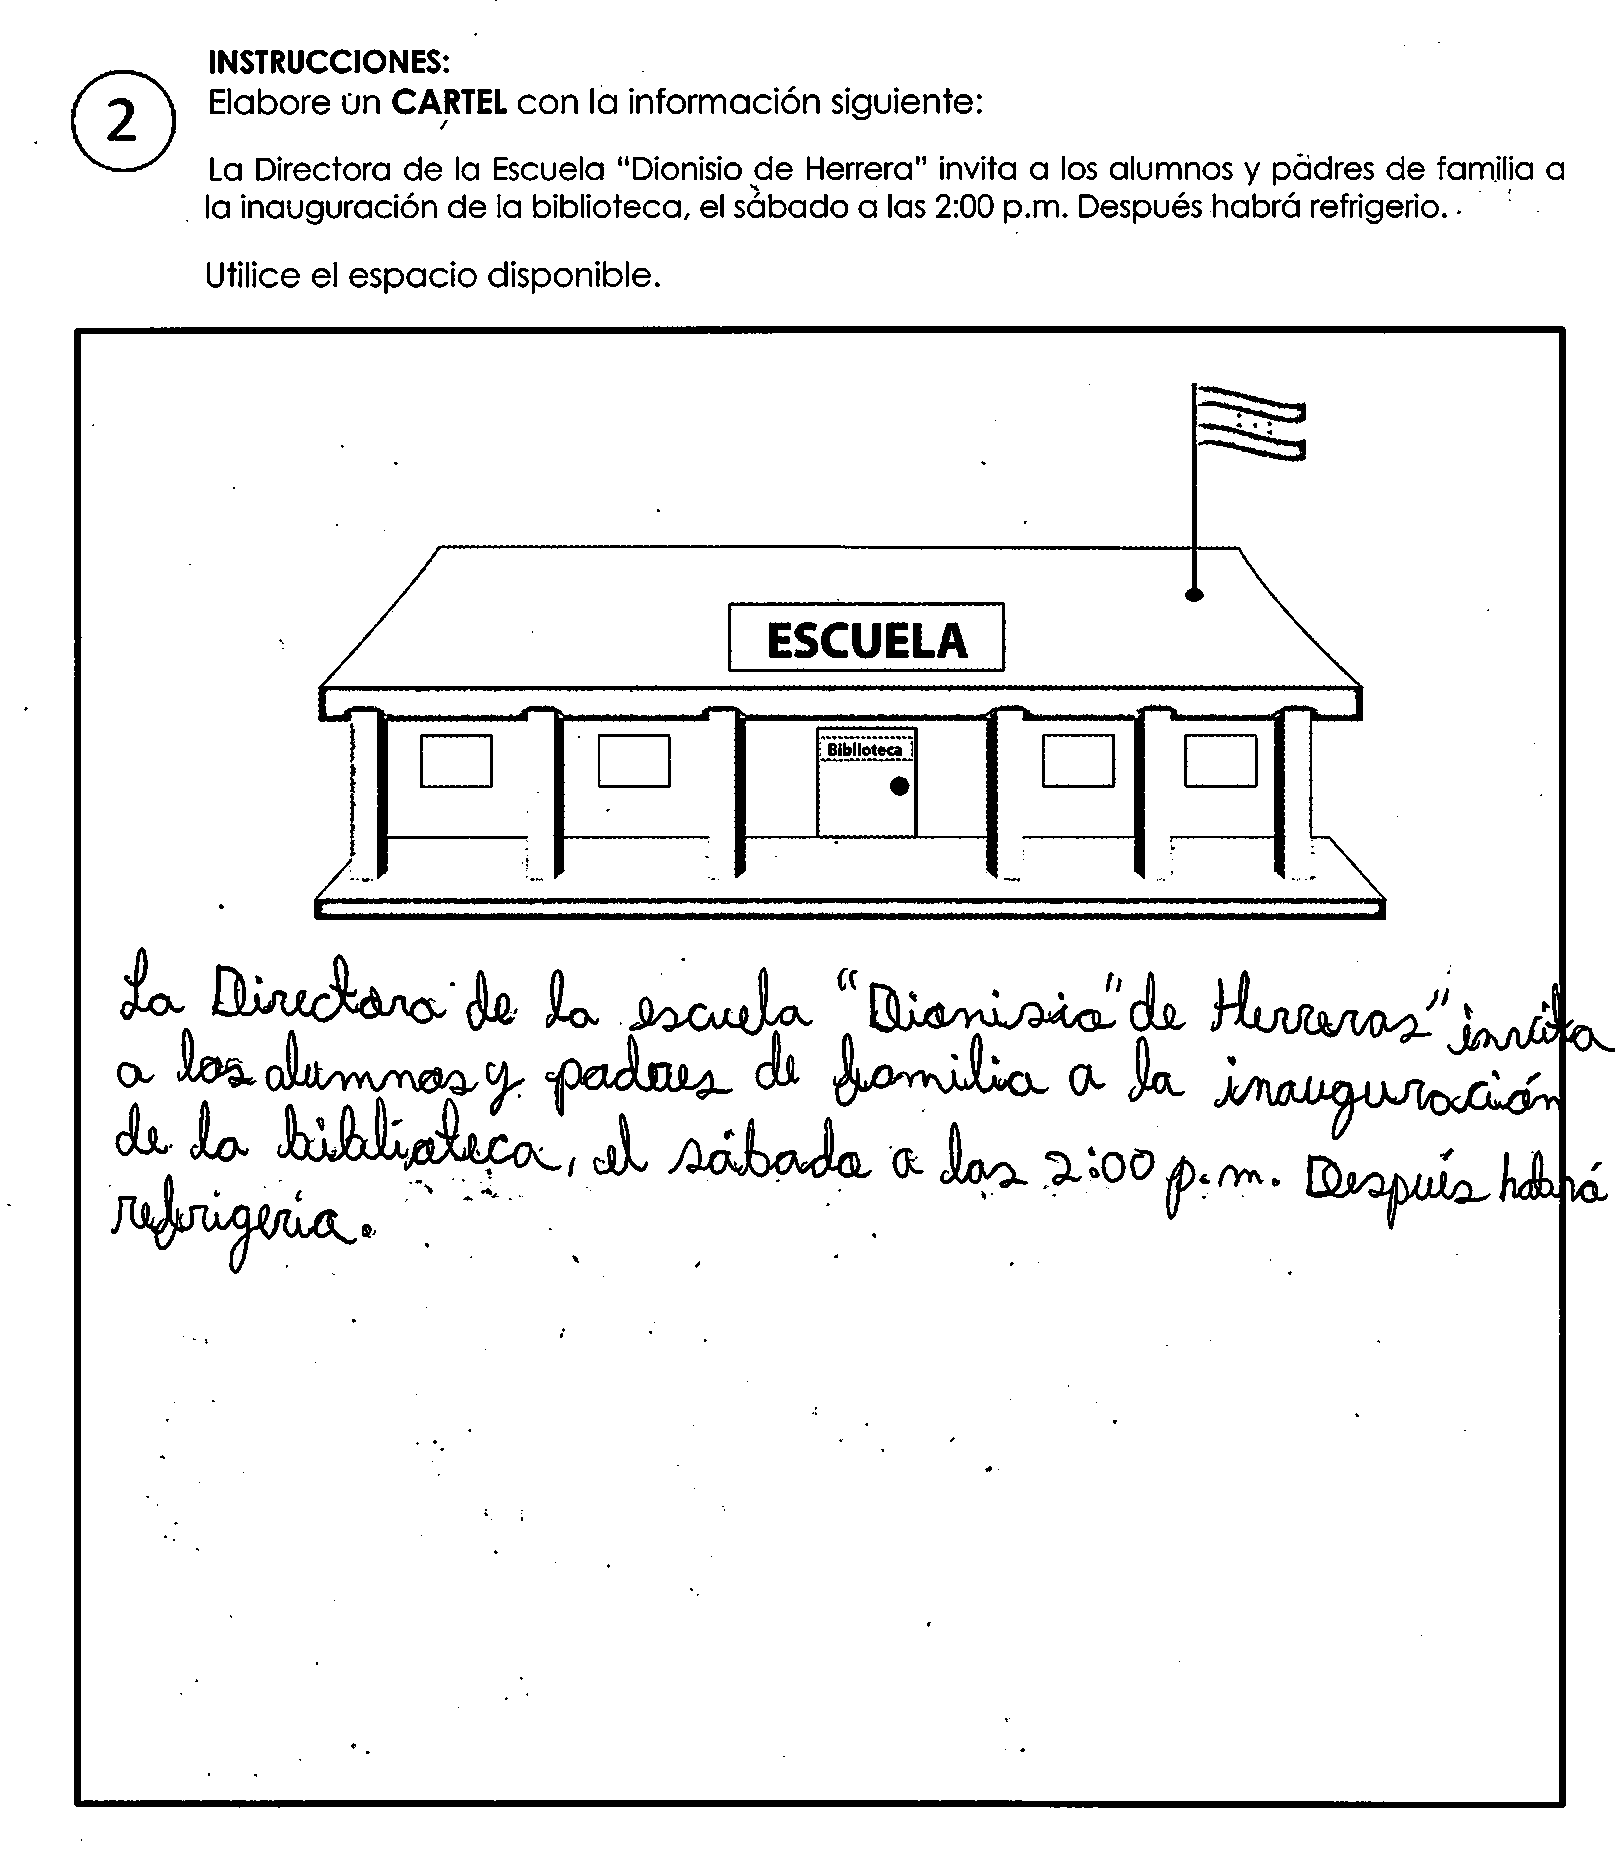 INSTRUCCIONES:
2
Elabore un CARTEL con la información siguiente:
La Directora de la Escuela "Dionisio de Herrera" invita a los alumnos y padres de familia a
la inauguración de la biblioteca, el sábado a las 2:00 p.m. Después habrá refrigerio.
Utilice el espacio disponible.
ESCUELA
Biblioteca
La Directora de la escuela "Dionisio" de Herreras" invita
a los alumnos y padres de familia a la inauguración
de la biblioteca, el sábado a las 2:00 p.m. Después habrá
refrigeria.